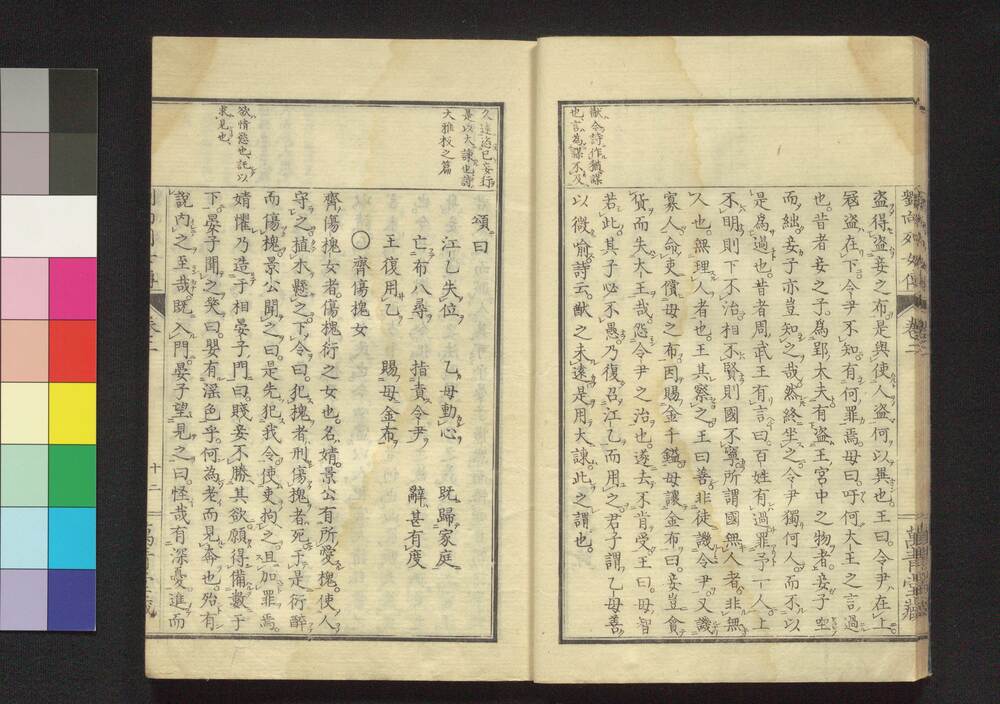 猷今詩作猶謀
也言為謀不及
盗得盗妾之布是與使人盗何以異也王曰令尹在上
冦盗在下令尹不知有何罪焉母曰吁何大王之言過
也昔者妾之子為郢大夫有盗王宮中之物者妾子坐
而絀妾子亦豈知之哉然終坐之令尹獨何人而不以
是為過也昔者周武王有言曰百姓有過罪予一人上
不明則下不治相不賢則國不寧所謂國無人者非無
人也無理人者也王其察之王曰善非徒譏令尹又譏
寡人命吏償母之布因賜金千鎰母讓金布曰妾豈貪
貨而失大王哉怨令尹之治也遂去不肯受王曰母智
若此其子必不愚乃復召江乙而用之君子謂乙母善
以微喻詩云猷之未遠是用大諫此之謂也
久遠恣已妄行
是以大諫也詩
大雅板之篇
頌曰
江乙失位 乙母動心 既歸家庭
亡布八尋 指責令尹 辭甚有度
王復用乙 賜母金布
〇齊傷槐女
齊傷槐女者傷槐衍之女也名婧景公有所愛槐使人
守之植木懸之下令曰犯槐者刑傷槐者死于是衍醉
而傷槐景公聞之曰是先犯我令使吏拘之且加罪焉
婧懼乃造于相晏子門曰賤妾不勝其欲願得備數于
下晏子聞之笑曰嬰有淫色乎何為老而見奔也殆有
說内之至哉既入門晏子望見之曰怪哉有深憂進而
欲情慾也託以
求見也
十二